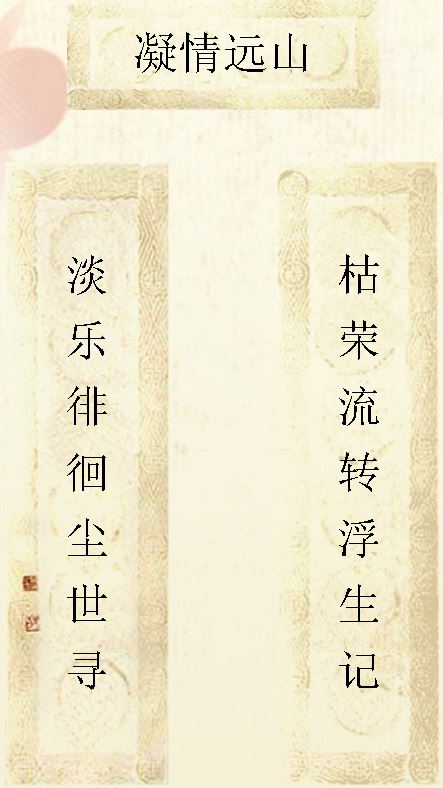 凝情远山
枯荣流转浮生记
淡乐徘徊尘世寻